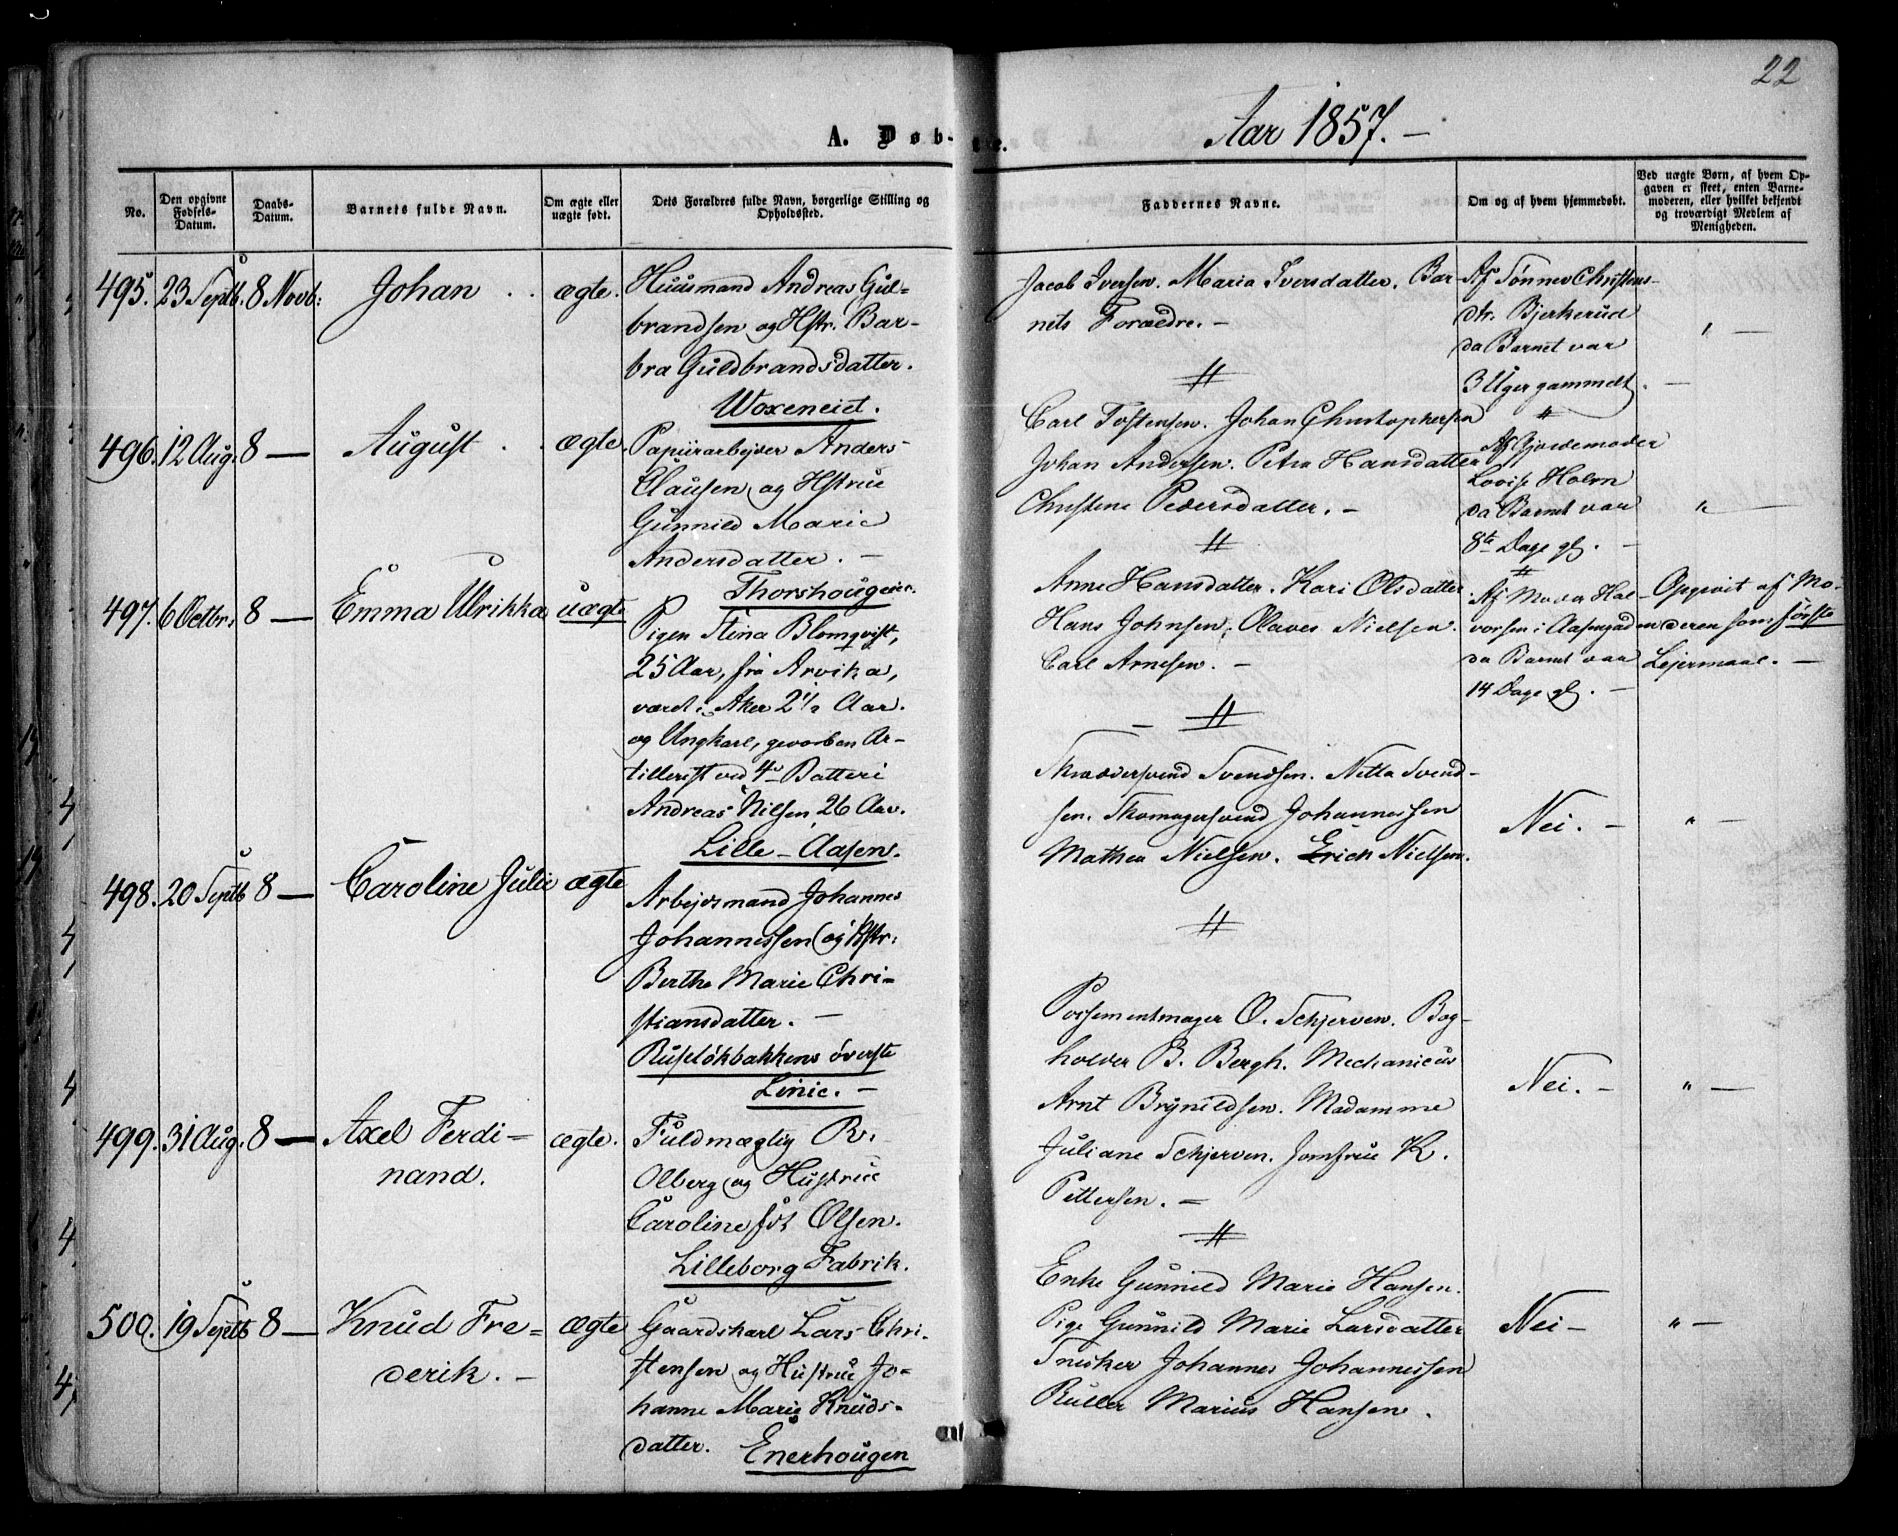 22
A. Døb-
te.
Aar 1857. –
No.
Den opgivne
Fødsels-
Datum.
Daabs-
Datum.
Barnets fulde Navn.
Om ægte eller
uægte født.
Dets Forældres fulde Navn, borgerlige Stilling og
Opholdssted.
Faddernes Navne.
Om og af hvem hjemmedøbt.
Ved uægte Børn, af hvem Op-
gaven er skeet, enten Barne-
moderen, eller hvilket bekjendt
og troværdigt Medlem af
Menigheden.
495. 23 Septb. 8 Novb: Johan . . ægte.
Huusmand Andreas Gul-
brandsen og Hstr. Bar-
bra Guldbrandsdatter.
Woxeneiet.
Jacob Iversen. Maria Iversdatter. Bar-
nets Forældre. –
Af Tønner Christens-
dtr. Bjerkerud
da Barnet var
3 Uger gammelt. –
" –
496. 12 Aug. 8 – August . . ægte.
Papiirarbejder Anders
Clausen og Hstrue
Gunnild Marie
Andersdatter. –
Thorshougeie.
Carl Tostensen. Johan Christophersen
Johan Andersen. Petra Hansdatter
Christene Pedersdatter. –
Af Gjordemoder
Lovise Holm
da Barnet var
8te Dage gl. –
" –
497. 6 Octbr. 8 – Emma Ulrikka uægte
Pigen Stina Blomqvist,
25 Aar, fra Arvika,
været i Aker 2½ Aar.
og Ungkarl, gevorben Ar-
tillerist ved 4de Batteri
Andreas Nilsen 26 Aar.
Lille-Aasen.
Anne Hansdatter. Kari Olsdatter
Hans Johnsen. Olaves Nielsen.
Carl Arnesen. –
Af Mader Hal-
vorsen i Aasengaden
da Barnet var
14 Dage gl. –
Opgivit af Mo-
deren som første
Lejermaal. –
498. 20 Septb 8 – Caroline Julie ægte
Arbejdsmand Johannes
Johannessen og Hstr:
Berthe Marie Chri-
stiansdatter. –
Ruseløkbakkens øverste
Linie. –
Skrædersvend Svendsen. Netta Svend-
sen. Skomagersvend Johannessen
Mathea Nielsen. Erich Nielsen.
Nei. –
" –
499. 31 Aug. 8 – Axel Ferdi-
nand.
ægte.
Fuldmægtig R.
Olberg og Hustrue
Caroline fdt Olsen.
Lilleborg Fabrik.
Possementmager O. Schjerven. Bog-
holder B. Bergh. Mechanicus
Arnt Brynildsen. Madamme
Juliane Schjerven. Jomfrue K.
Pettersen. –
Nei. –
" –
500. 19 Septb 8 – Knud Fre-
derik. –
ægte
Gaardskarl Lars Chri-
stensen og Hustrue Jo-
hanne Marie Knuds-
datter. Enerhougen
Enke Gunnild Marie Hansen.
Pige Gunnild Marie Larsdatter
Snedker Johannes Johannessen
Ruller Marius Hansen.
Nei –
" –